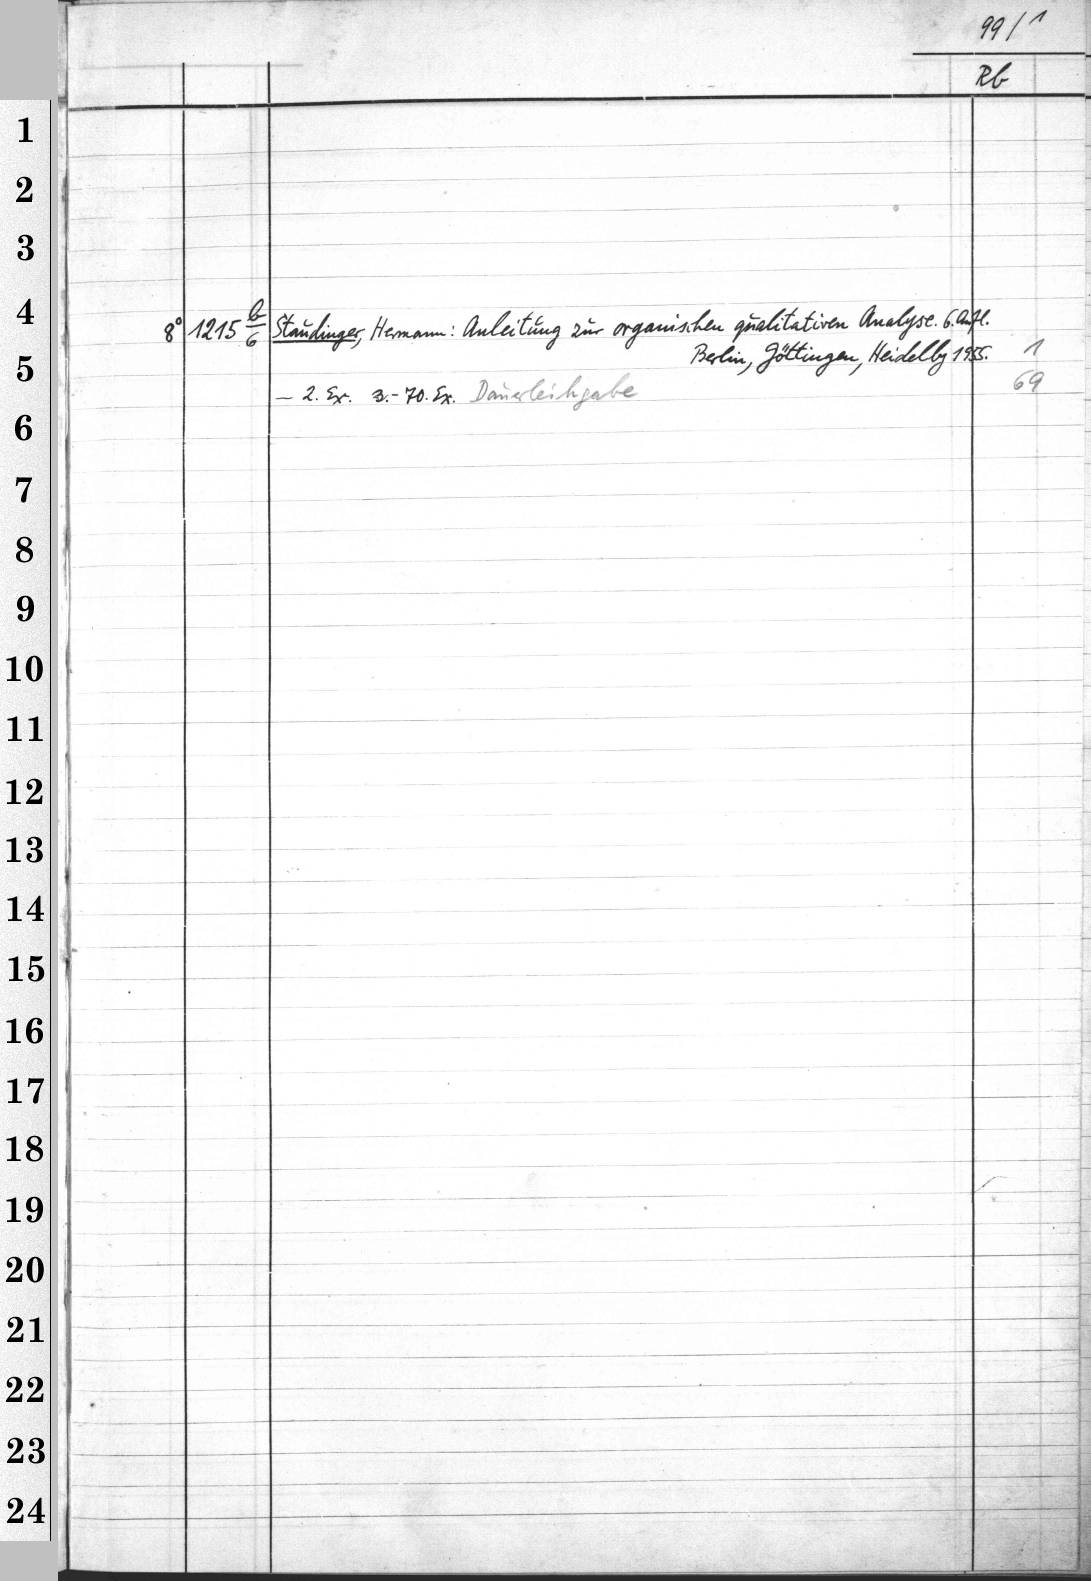 99/1
Rb
1
2
3
4
8° 1215 b/6 Staudinger, Hermann: Anleitung zur organischen qualitativen Analyse. 6. Aufl.
5
Berlin, Göttingen, Heidelbg 1955. 1
– 2. Ex. 3.-70. Ex. Dauerleihgabe 69
6
7
8
9
10
11
12
13
14
15
16
17
18
19
20
21
22
23
24